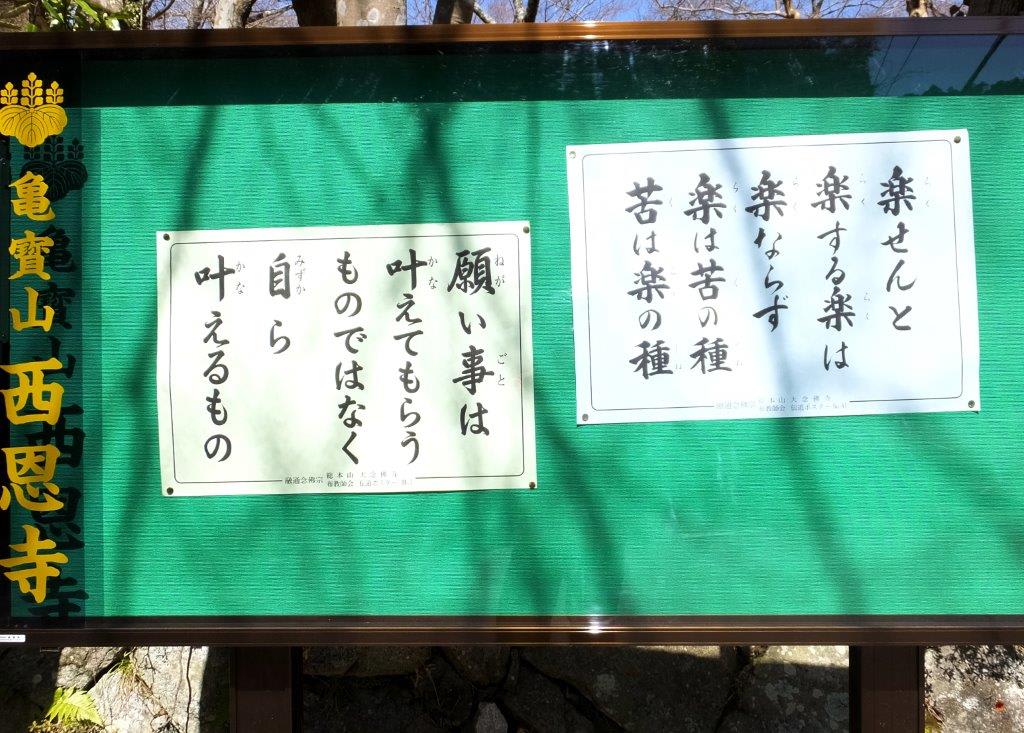 亀寳山 西恩寺
楽せんと
楽する楽は
楽ならず
楽は苦の種
苦は楽の種
融通念佛宗 総本山大念佛寺
布教師会 伝道ポスター
願い事は
叶えてもらう
ものではなく
自ら
叶えるもの
融通念佛宗 総本山大念佛寺
布教師会 伝道ポスター